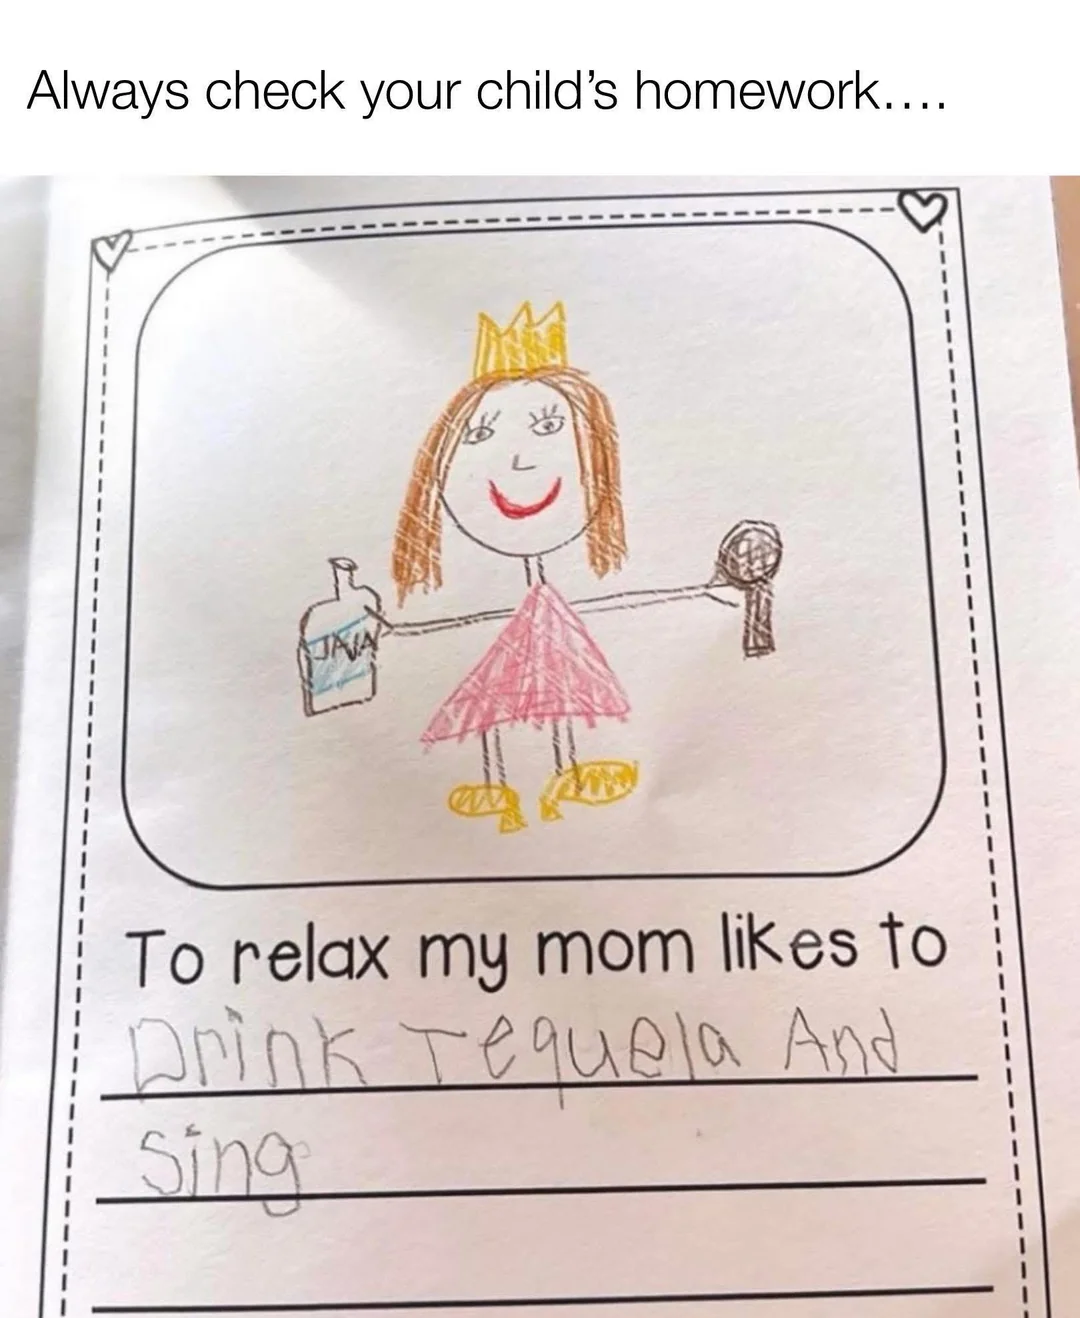 Always check your child’s homework....
JAVA
To relax my mom likes to
Drink Tequela And
Sing